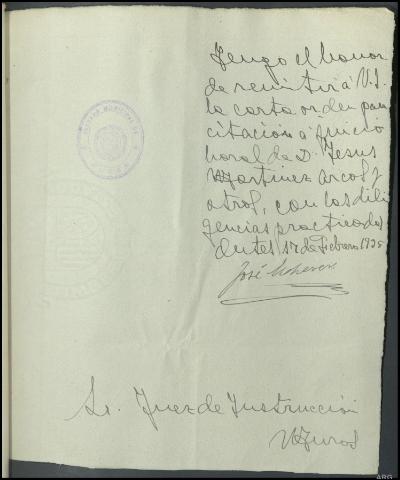 Tengo el honor
de remitir a V.S.
la carta orden para
citación a juicio
horal de D. Jesus
Martinez Arcos y
otros, con las dili
gencias practicadas
Outes 17 de Febrero 1935
José
Sr. Juez de Instrucción
Muros
ARG